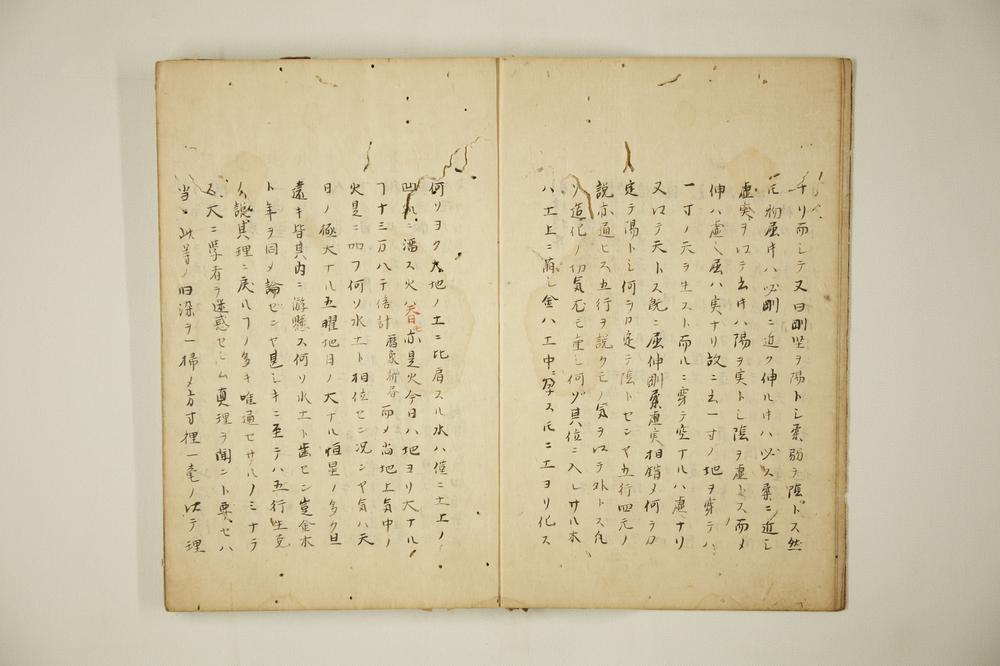 ナリ而シテ又曰剛堅ヲ陽トシ柔弱ヲ陰トス然
𪜈物屈キハ必剛ニ近ク伸ルキハ必ス柔ニ近シ
虚実ヲ以テ云キハ陽ヲ実トシ陰ヲ虚トス而メ
伸ハ虚シ屈ハ実ナリ故ニ云一寸ノ地ヲ穿テハ
一寸ノ元ヲ生スト而ルニ穿テ空ナルハ虚ナリ
又以テ天トス既ニ屈伸剛柔虚実相錯メ何ヲカ
定テ陽トシ何ヲカ定テ陰トセンヤ五行四元ノ
説亦通セス五行ヲ説クモノ気ヲ以テ外トス凡
ソ造化ノ切気尤モ重シ何ゾ其位ニ入レサル木
ハ土上ニ萌シ金ハ土中ニ孕ス𪜈ニ土ヨリ化ス
何ソヨク大地ノ土ニ比肩スル水ハ僅ニ土上ノ
凹処ニ溜ス火ハ天日モ亦是火今日ハ地ヨリ大ナル
フ十三万八千倍計 暦象新書 而メ尚地上気中ノ
火是ニ加フ何ソ水土ト相位セン况ンヤ気ハ天
日ノ極大ナル五曜地日ノ大ナル恒星ノ多ク且
遠キ皆其内ニ游懸ス何ソ水土ト歯セン豈金木
ト年ヲ同メ論センヤ甚シキニ至テハ五行生克
ノ説其理ニ戻ルフノ多キ唯通セサルノミナラ
ス大ニ学者ヲ迷惑セシム真理ヲ聞ント要セハ
当ニ此等ノ旧染ヲ一掃メ方寸裡一毫ノ以テ理